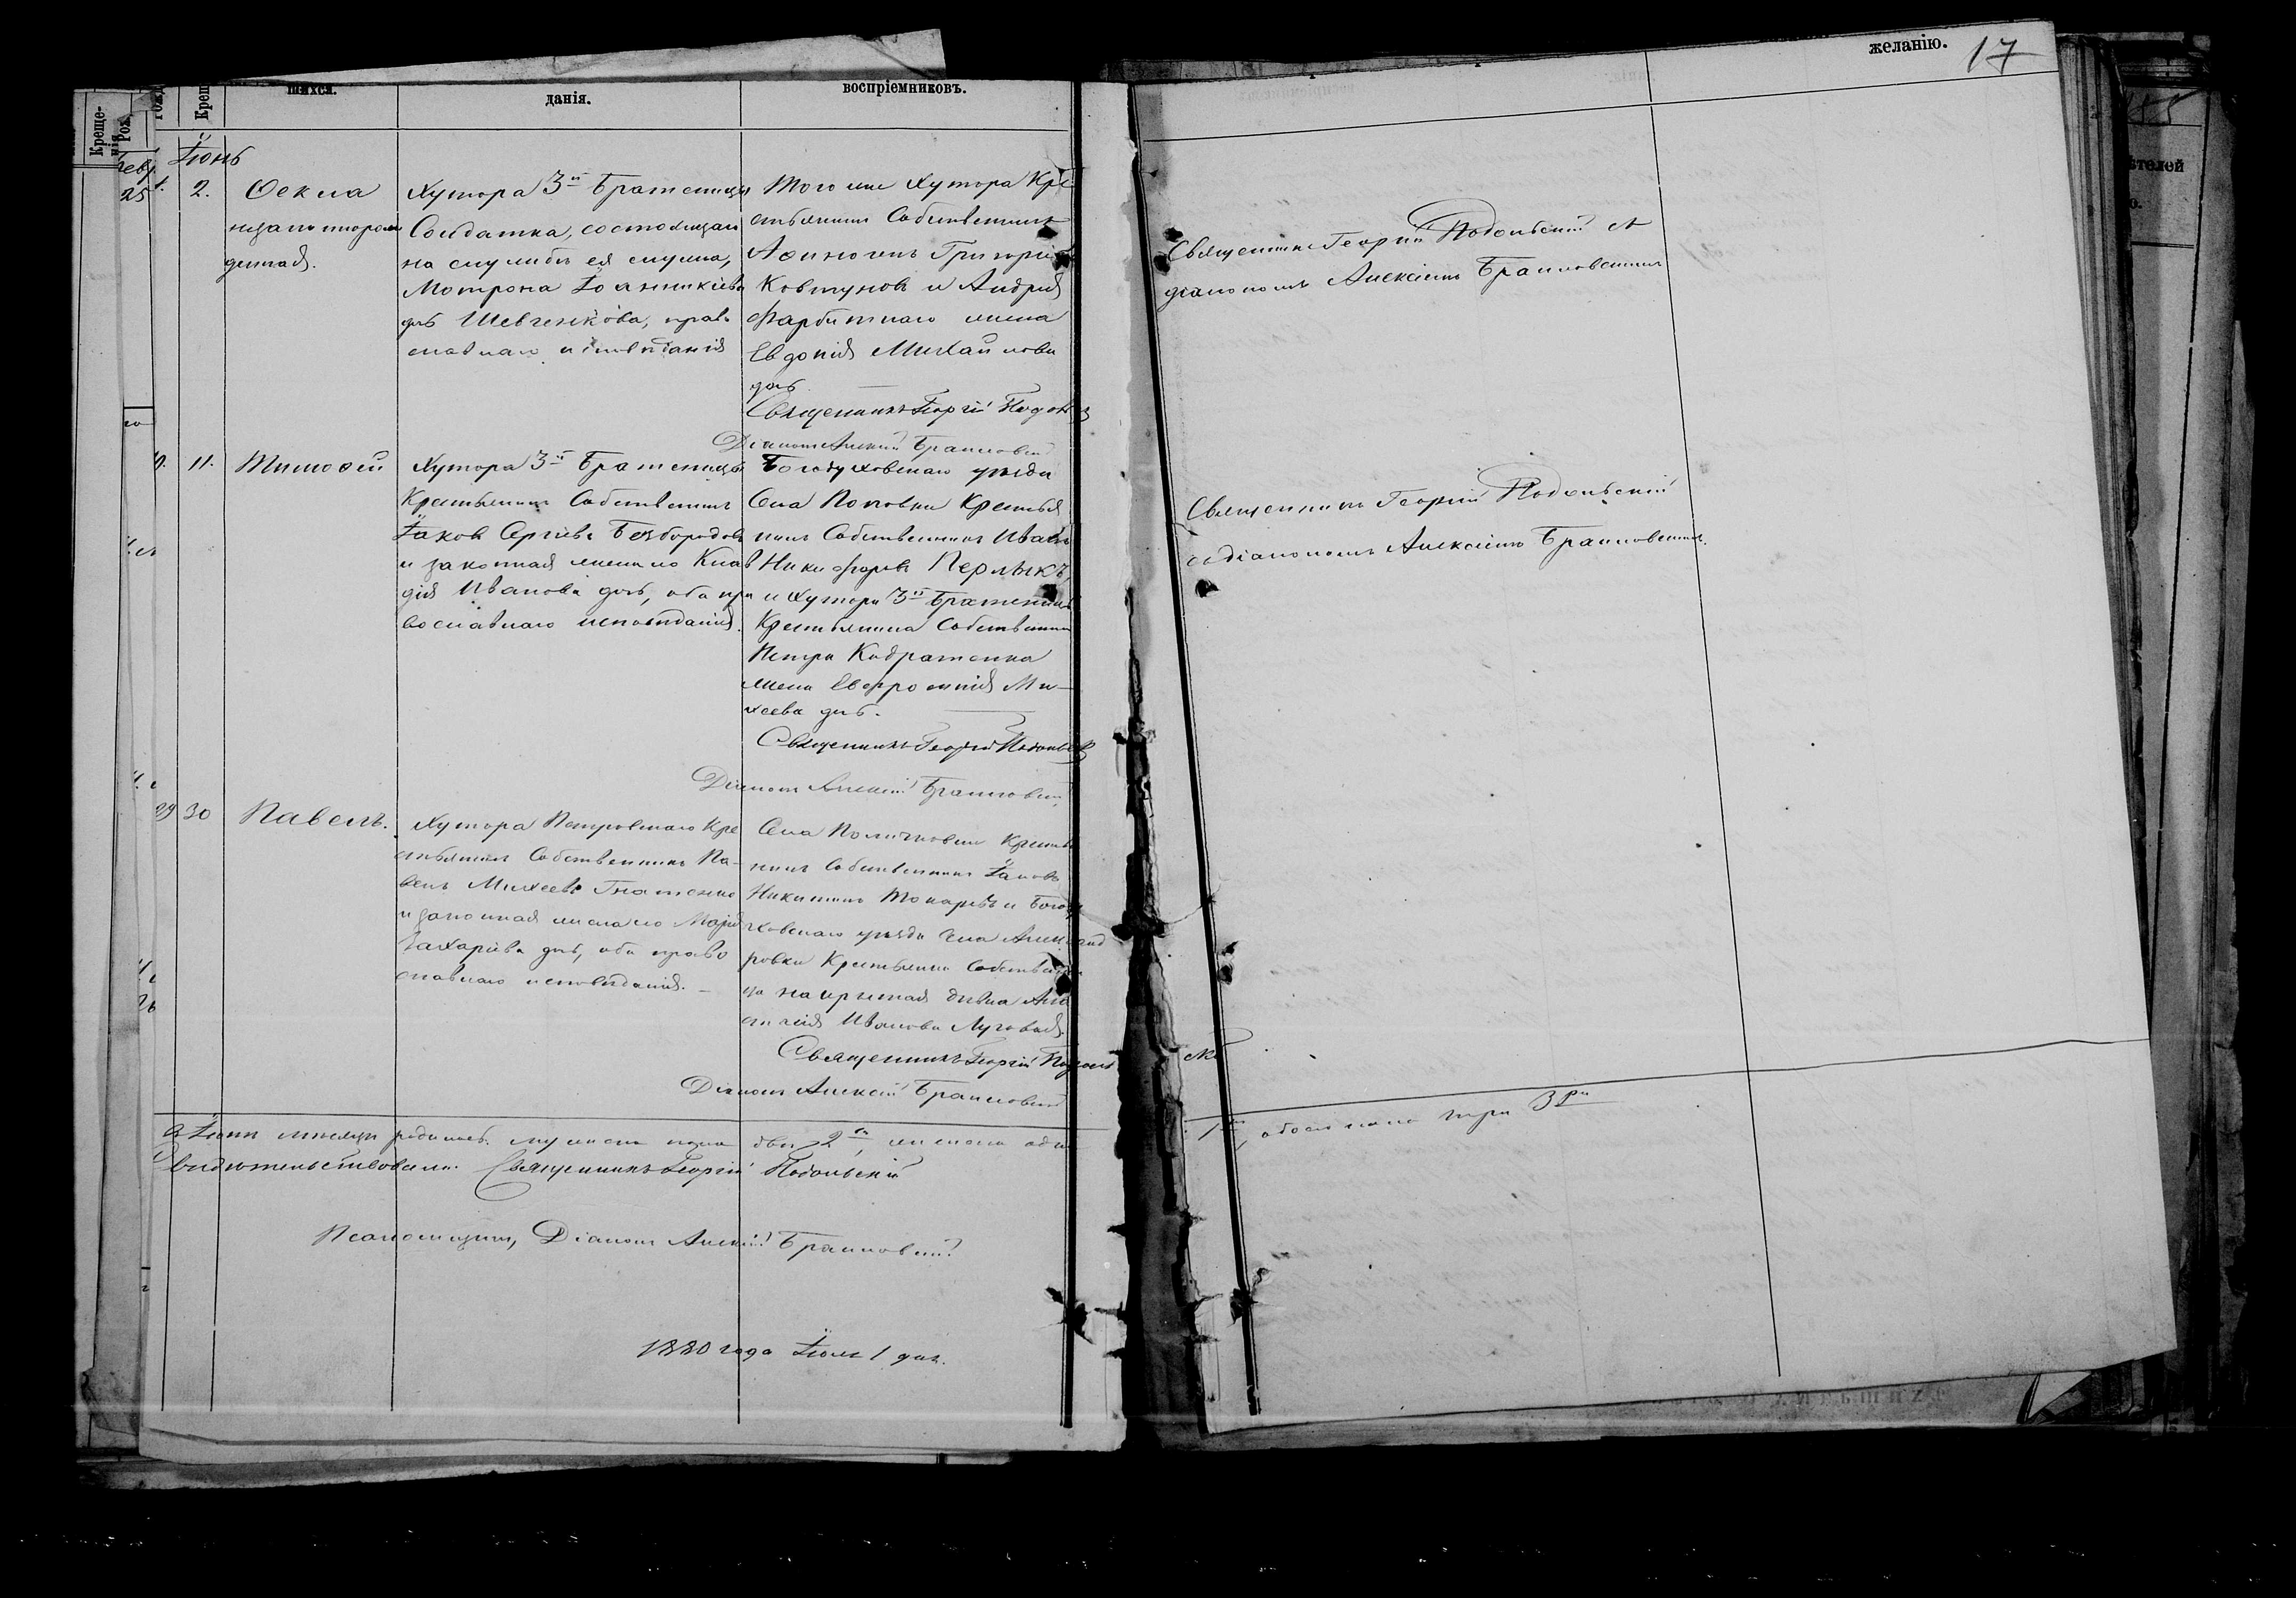 желанію. 17
Креще-
нія
Рож.
Крещ
шихся.
данія.
воспріемниковъ.
Іюнь
1. 2.
Ѳекла
незаконнорож
денная.
Хутора 3й Братеницы
Солдатка, состоящаго
на службѣ ея мужа,
Мотрона Іоанникіева
дчь Шевченкова, право
славнаго исповѣданія
Того же Хутора Кре
стьянинъ Собственникъ
Аѳиногенъ Григорьевъ
Ковтуновъ и Андрея
Фарбитнаго жена
Евдокія Михайлова
дчь.
Священникъ Георгій Подольскій
Діаконъ Алексій Браиловскій
Священникъ Георгій Подольскій съ
діакономъ Алексіемъ Браиловскимъ
10. 11.
Тимоѳей
Хутора 3й Братеницы
Крестьянинъ Собственникъ
Іаковъ Сергіевъ Безбородовъ
и законная жена его Клав
дія Иванова дчь, оба пра
вославнаго исповѣданія.
Богодуховскаго уѣзда
Села Поповки Крестья
нинъ Собственникъ Иванъ
Никифоровъ
и Хутора 3й Братеницы
Крестьянина Собственника
Петра Кадратенка
жена Евфросинія Ми-
хеева дчь.
Священникъ Георгій Подольскій
Діаконъ Алексій Браиловскій
Священникъ Георгій Подольскій
со діакономъ Алексіемъ Браиловскимъ.
29 30
Павелъ.
Хутора Петровскаго Кре
стьянинъ Собственникъ Па-
велъ Михеевъ Гнатенко
и законная жена его Марія
Захаріева дчь, оба право
славнаго исповѣданія. -
Села Поличковки Крестья
нинъ Собственникъ Іаковъ
Никитинъ Токаревъ и Богоду
ховскаго уѣзда села Александ
ровки Крестьянина Собственни
ка дѣвка Ана
стасія Иванова Луговая.
Священникъ Георгій Подольскій
Діаконъ Алексій Браиловскій
Въ Іюнѣ мѣсяцѣ родилось: мужеска пола два 2а, женска одна 1на, обоего пола три 3ри
Свидѣтельствовали: Священникъ Георгій Подольскій
Псаломщикъ, Діаконъ Алексій Браиловскій
1880 года Іюля 1 дня.